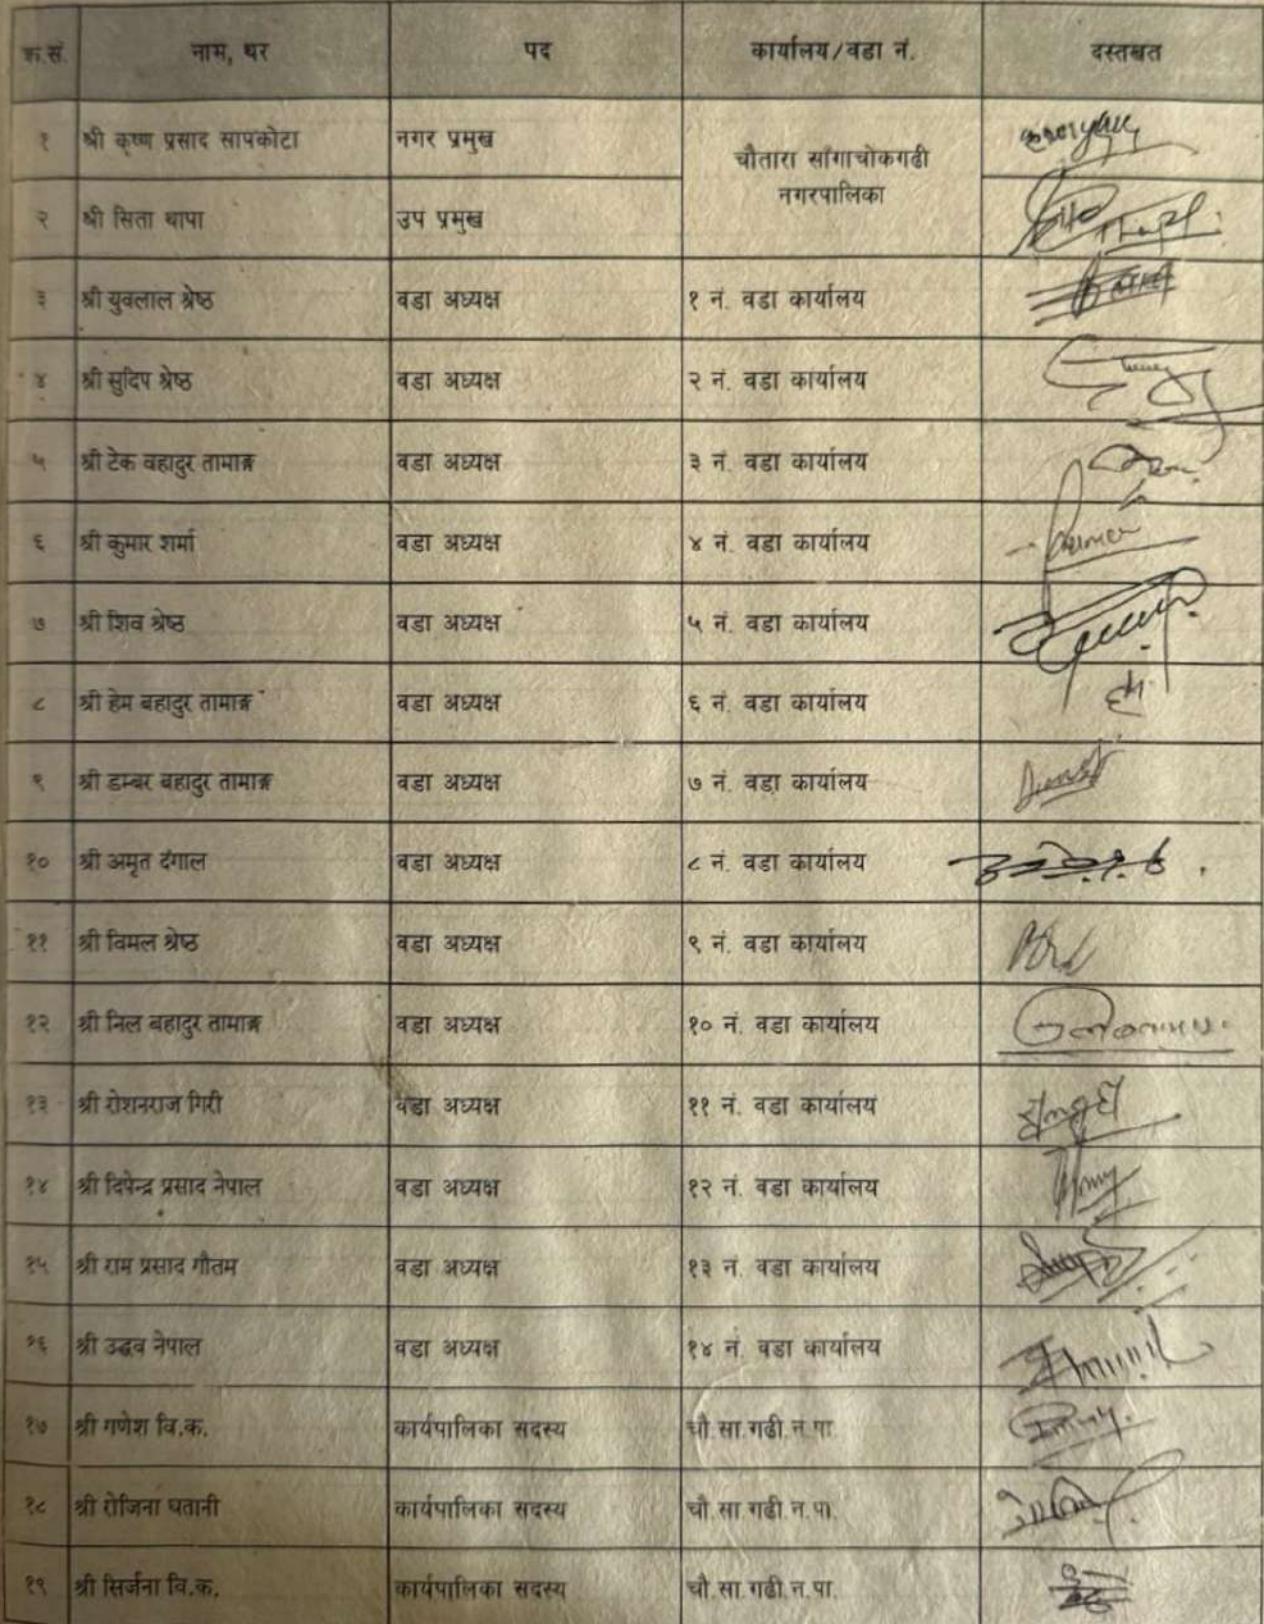 क्र.सं. नाम, थर पद कार्यालय/वडा नं. दस्तखत
१ श्री कृष्ण प्रसाद सापकोटा नगर प्रमुख चौतारा साँगाचोकगढी
नगरपालिका
२ श्री सिता थापा उप प्रमुख
३ श्री युवलाल श्रेष्ठ वडा अध्यक्ष १ नं. वडा कार्यालय
४ श्री सुदिप श्रेष्ठ वडा अध्यक्ष २ नं. वडा कार्यालय
५ श्री टेक वहादुर तामाङ्ग वडा अध्यक्ष ३ नं. वडा कार्यालय
६ श्री कुमार शर्मा वडा अध्यक्ष ४ नं. वडा कार्यालय
७ श्री शिव श्रेष्ठ वडा अध्यक्ष ५ नं. वडा कार्यालय
८ श्री हेम बहादुर तामाङ्ग वडा अध्यक्ष ६ नं. वडा कार्यालय
९ श्री डम्बर बहादुर तामाङ्ग वडा अध्यक्ष ७ नं. वडा कार्यालय
१० श्री अमृत दंगाल वडा अध्यक्ष ८ नं. वडा कार्यालय
११ श्री विमल श्रेष्ठ वडा अध्यक्ष ९ नं. वडा कार्यालय
१२ श्री निल बहादुर तामाङ्ग वडा अध्यक्ष १० नं. वडा कार्यालय
१३ श्री रोशनराज गिरी वडा अध्यक्ष ११ नं. वडा कार्यालय
१४ श्री दिपेन्द्र प्रसाद नेपाल वडा अध्यक्ष १२ नं. वडा कार्यालय
१५ श्री राम प्रसाद गौतम वडा अध्यक्ष १३ नं. वडा कार्यालय
१६ श्री उद्धव नेपाल वडा अध्यक्ष १४ नं. वडा कार्यालय
१७ श्री गणेश वि.क. कार्यपालिका सदस्य चौ.सा.गढी.न.पा.
१८ श्री रोजिना घतानी कार्यपालिका सदस्य चौ.सा.गढी.न.पा.
१९ श्री सिर्जना वि.क. कार्यपालिका सदस्य चौ.सा.गढी.न.पा.